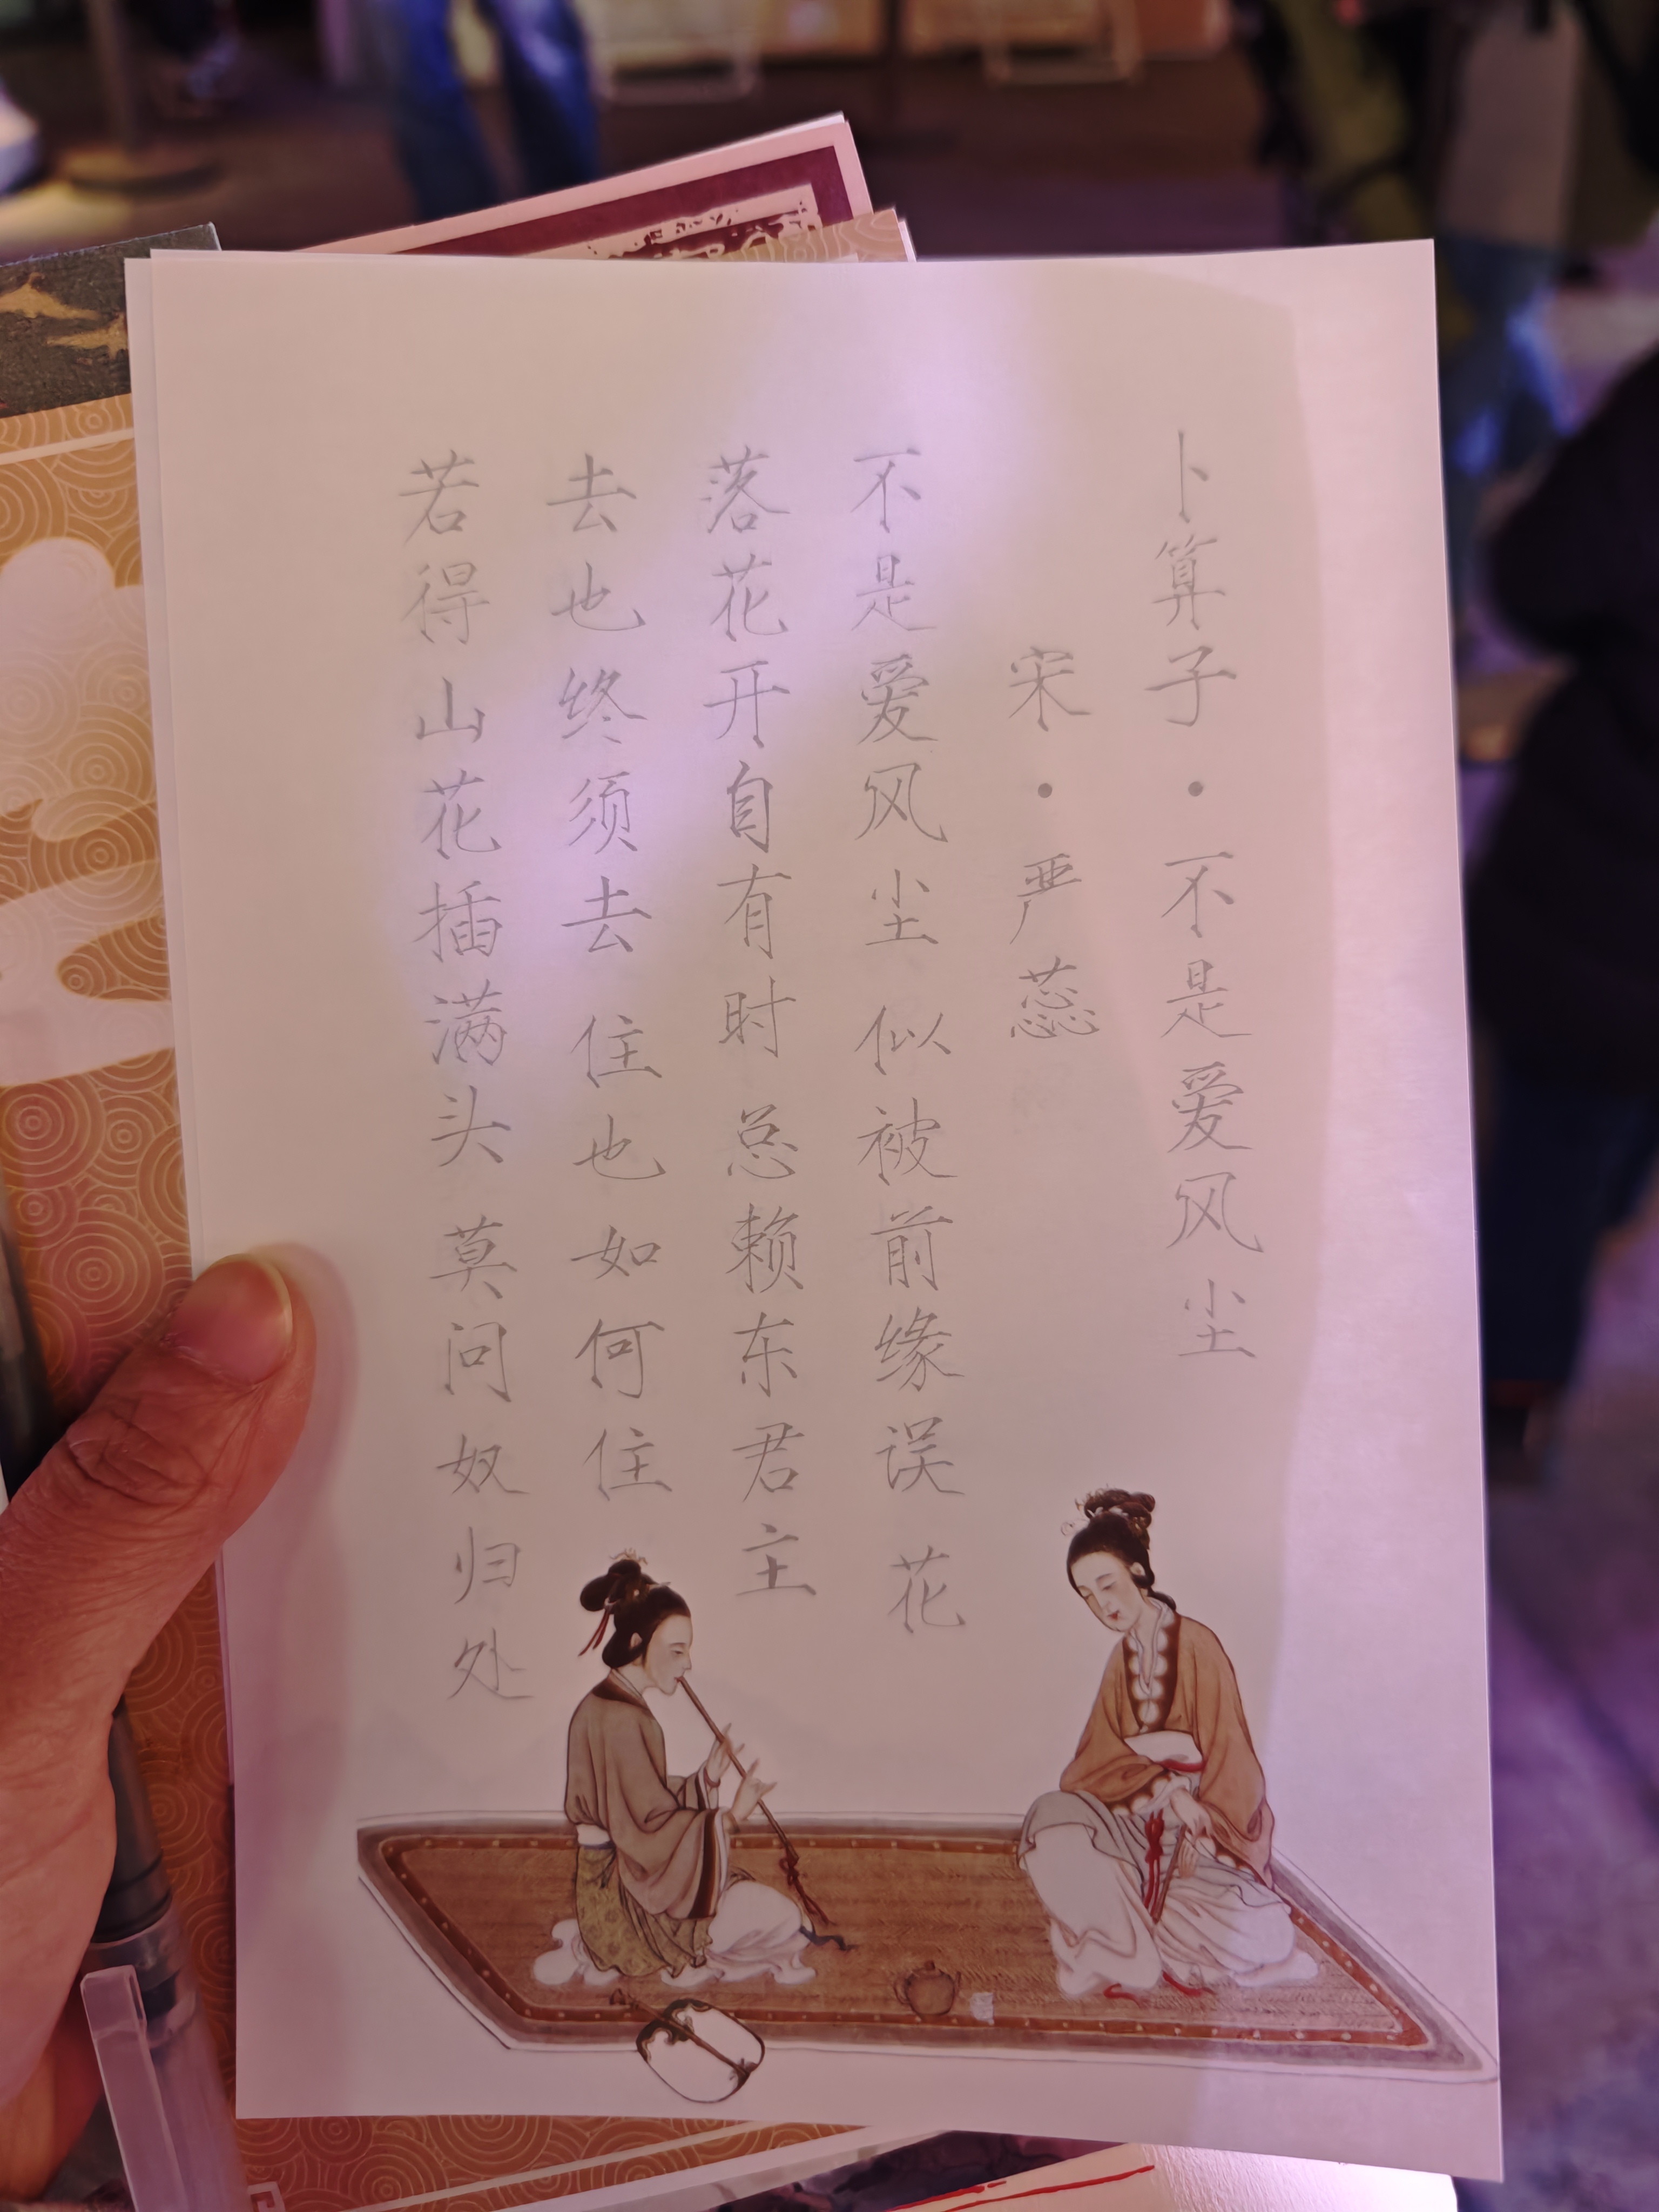 卜算子·不是爱风尘
宋·严蕊
不是爱风尘 似被前缘误 花
落花开自有时 总赖东君主
去也终须去 住也如何住
若得山花插满头 莫问奴归处